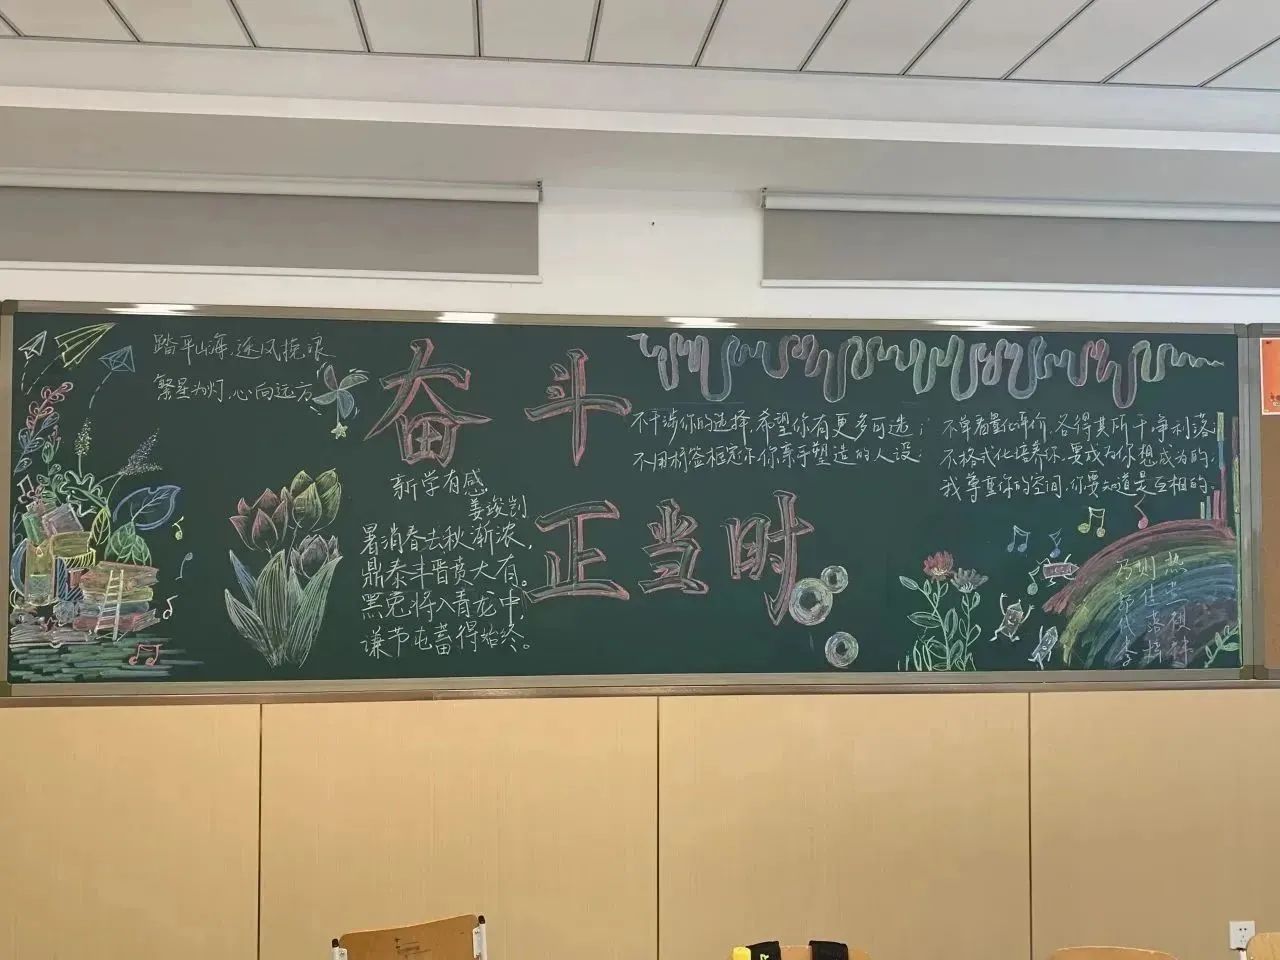 踏平山海,逐风挽浪
繁星为灯,心向远方
奋斗
正当时
新学有感
姜竣剀
暑消春去秋渐浓,
鼎泰丰晋贲大有。
黑兔将入青龙中,
谦节屯蓄得始终。
不干涉你的选择,希望你有更多可选;
不用标签框定你,你亲手塑造的人设;
不单看量化评价,各得其所干净利落;
不格式化培养你,要成为你想成为的;
我尊重你的空间,你要知道是互相的。